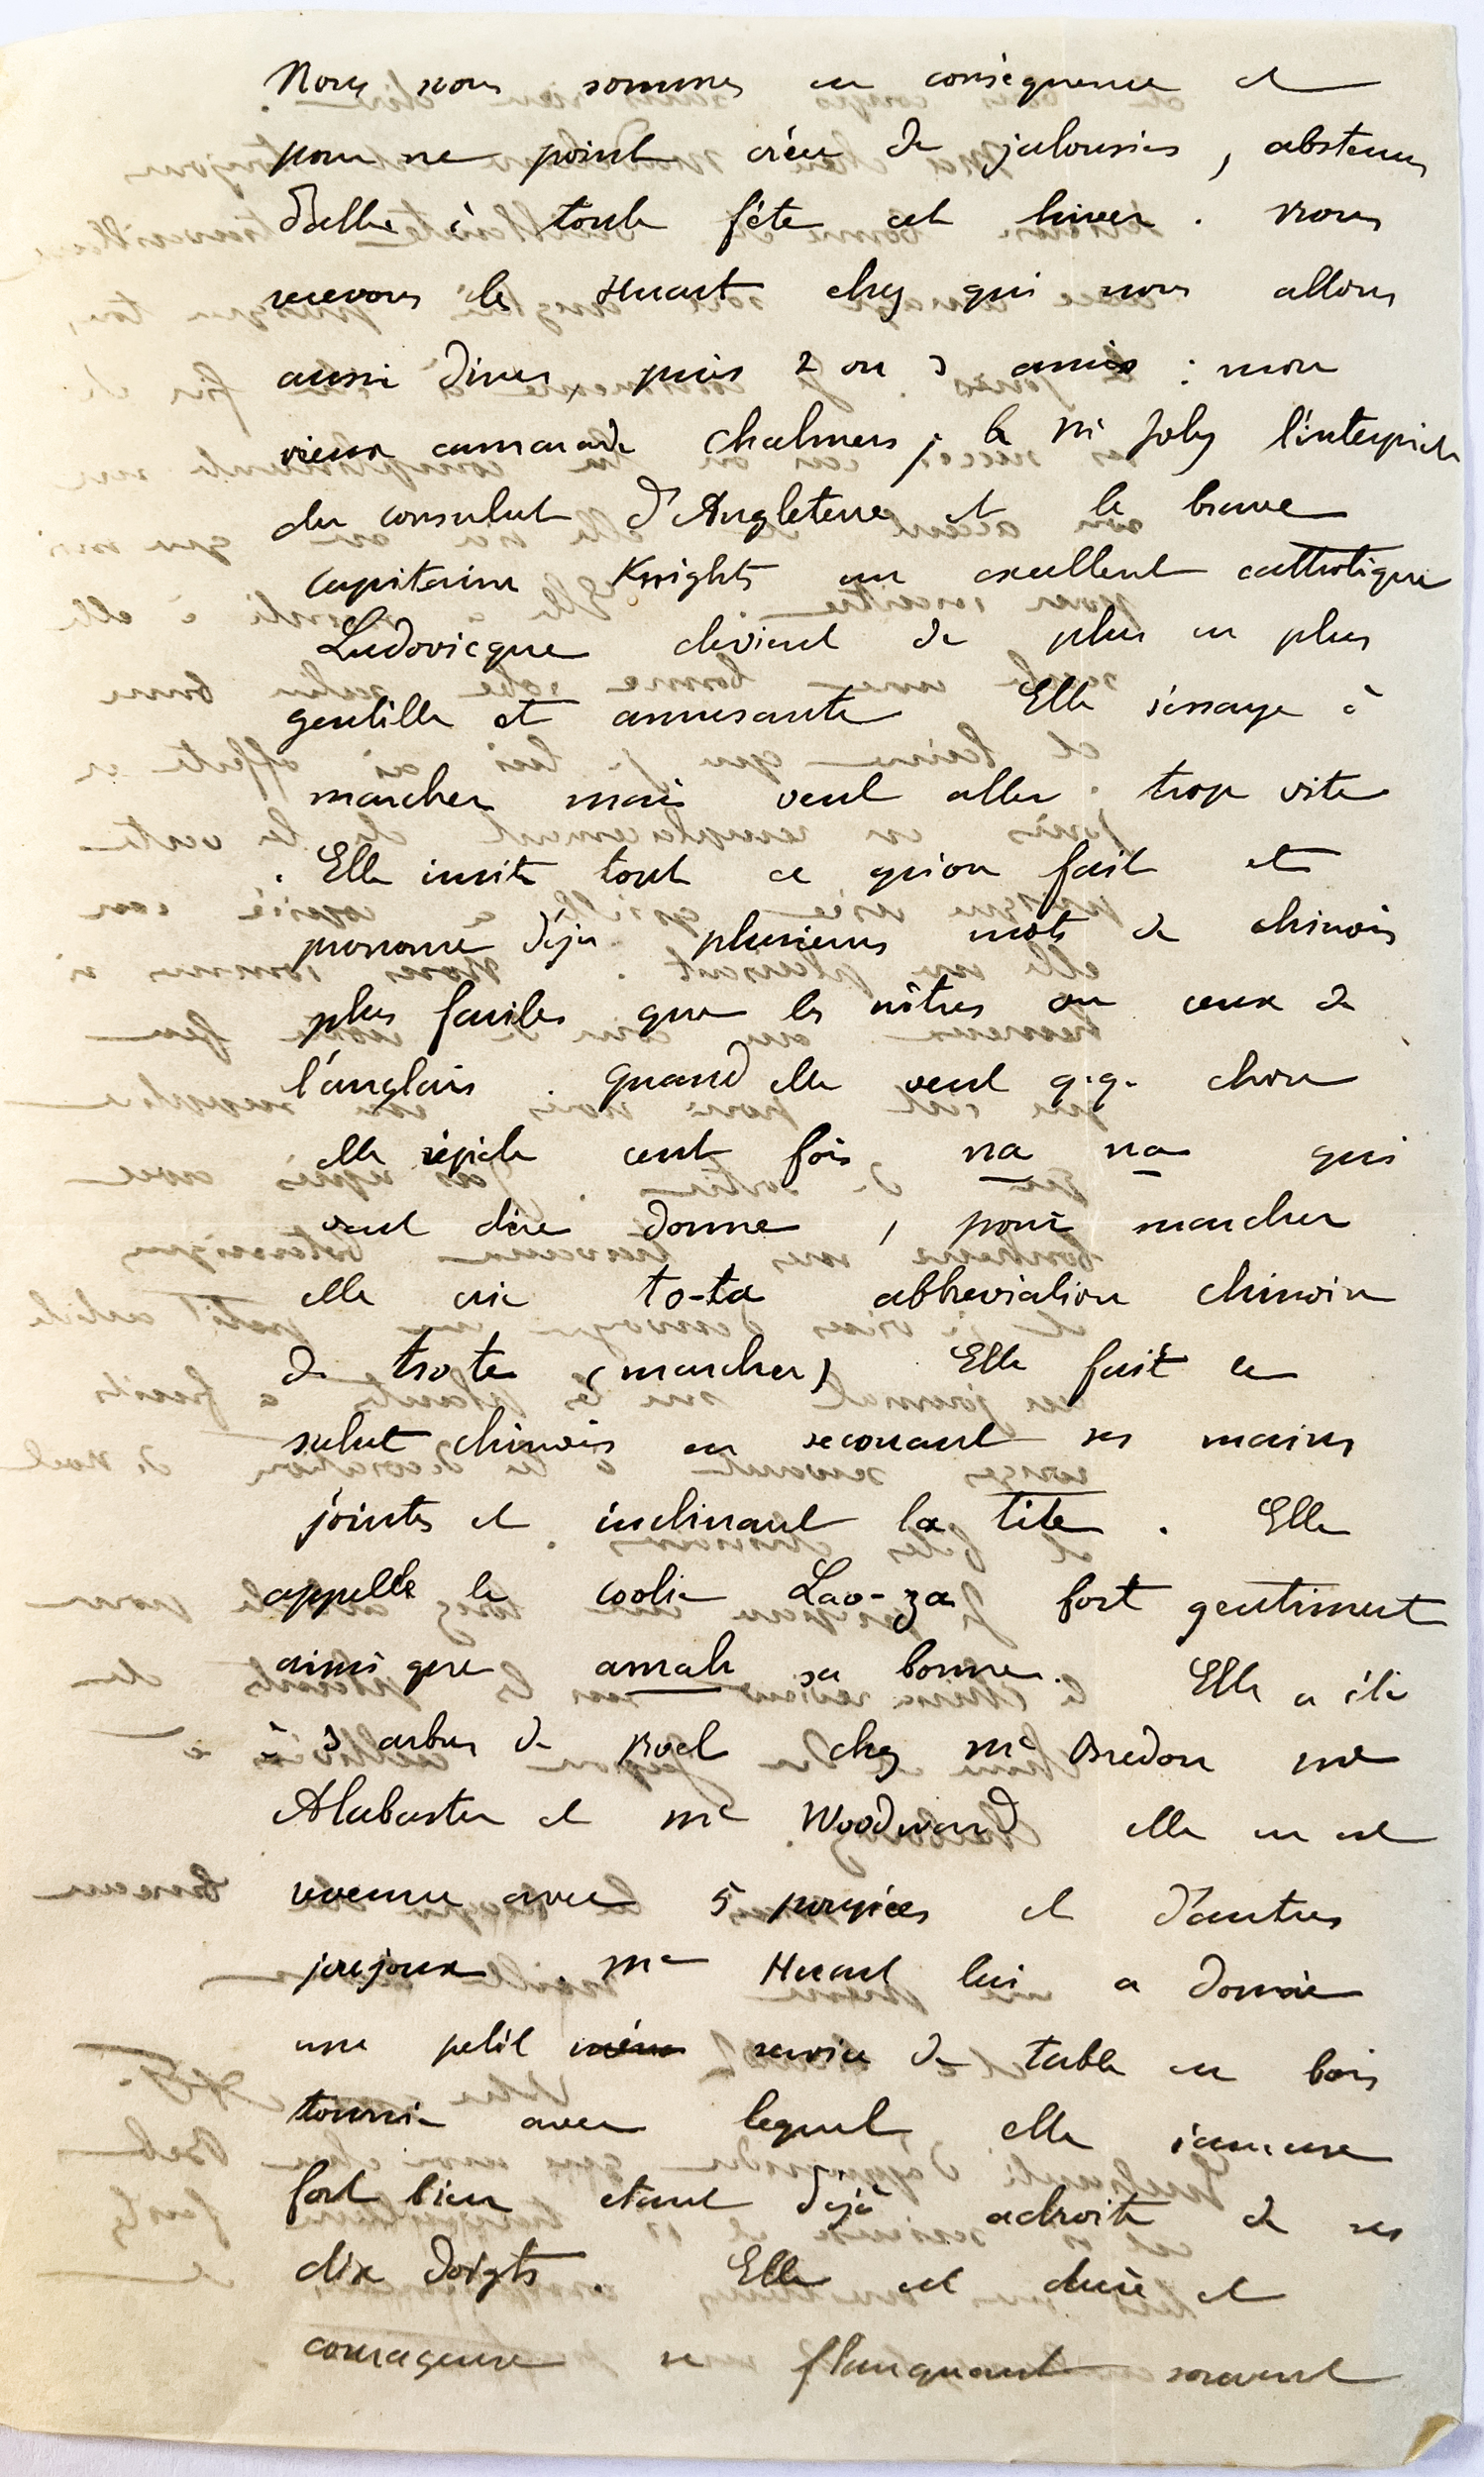 Nous nous sommes en conséquence et
pour ne point créer de jalousies, abstenus
d'aller à toute fête cet hiver. Nous
recevons les Huart chez qui nous allons
aussi diner, puis 2 ou 3 amis : mon
vieux camarade Chalmers, le Mr Joly l'interprète
du consulat d'Angleterre et le brave
capitaine Knights un excellent catholique
Ludovicque devient de plus en plus
gentille et amusante Elle s'essaye à
marcher mais veut aller trop vite
. Elle imite tout ce qu'on fait et
prononce déja plusieurs mots de chinois
plus faciles que les nôtres ou ceux de
l'anglais . Quand elle veut q.q. chose
elle répète cent fois na na qui
veut dire donne , pour marcher
elle crie to-ta abbreviation chinoise
de tso te (marcher) Elle fait le
salut chinois en secouant ses mains
jointes et inclinant la tête . Elle
appelle le coolie Lao-za fort gentiment
ainsi que amah sa bonne. Elle a été
à 3 arbres de Noel chez Me Bredon Me
Alabaster et Me Woodward elle en est
revenue avec 5 poupées et d'autres
joujoux . Me Huart lui a donné
une petit service de table en bois
tourné avec lequel elle s'amuse
fort bien etant déjà adroite de ses
dix doigts . Elle est dure et
courageuse se flanquant souvent